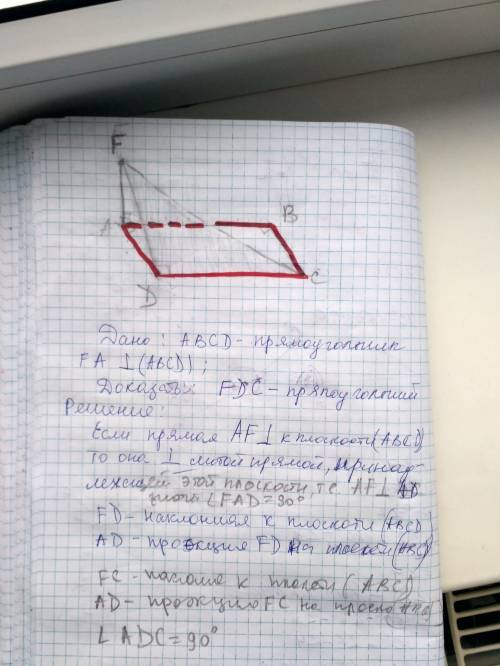 F
A B
D C
Дано: ABCD - прямоугольник
FA ⊥ (ABCD);
Доказать: FDC - прямоугольный
Решение:
Если прямая AF ⊥ к плоскости (ABCD)
то она ⊥ любой прямой, принад-
лежещей этой плоскости, т.е. AF ⊥ AD
∠FAD = 90°
FD - наклонная к плоскоти (ABCD)
AD - проэкция FD на плоскоти (ABC)
FC - к плоскти (ABC)
AD - FC на
∠ADC = 90°